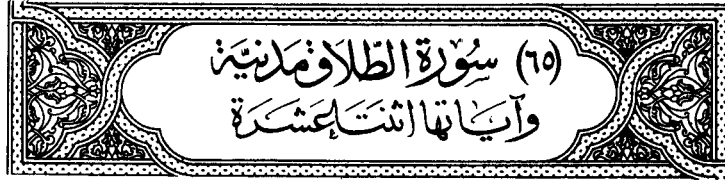 (٦٥) سُورَة الطَّلَاقِ مَدَنِيَّة
وَآيَاتُهَا اثْنَتَا عَشَرَة